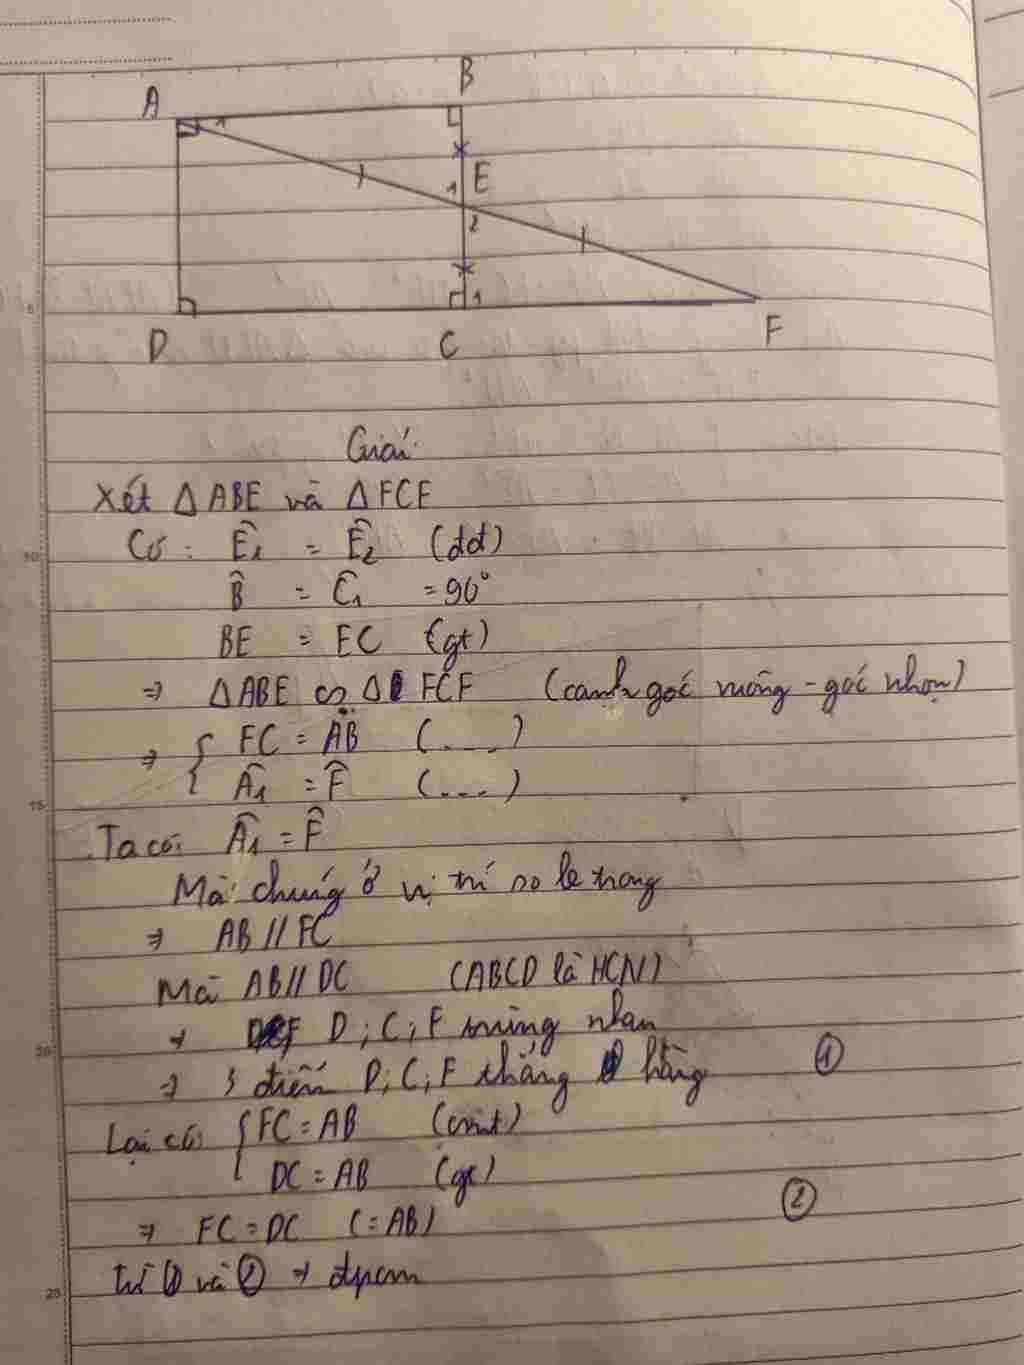 A
B
1
E
1
2
1
D
C
F
Giải:
Xét ΔABE và ΔFCE
Có: Ê₁ = Ê₂ (đđ)
B̂ = Ĉ₁ = 90°
BE = EC (gt)
⇒ ΔABE ∽ Δ FCE (cạnh góc vuông - góc nhọn)
⇒ { FC = AB (....)
Â₁ = F̂ (...)
Ta có: Â₁ = F̂
Mà chúng ở vị trí so le trong
⇒ AB // FC
Mà AB // DC (ABCD là HCN)
⇒ D; C; F trùng nhau
⇒ 3 điểm D; C; F thẳng hàng ①
Lại có: { FC = AB (cmt)
DC = AB (gt)
⇒ FC = DC (= AB) ②
từ ① và ② ⇒ đpcm
5
10
15
20
25